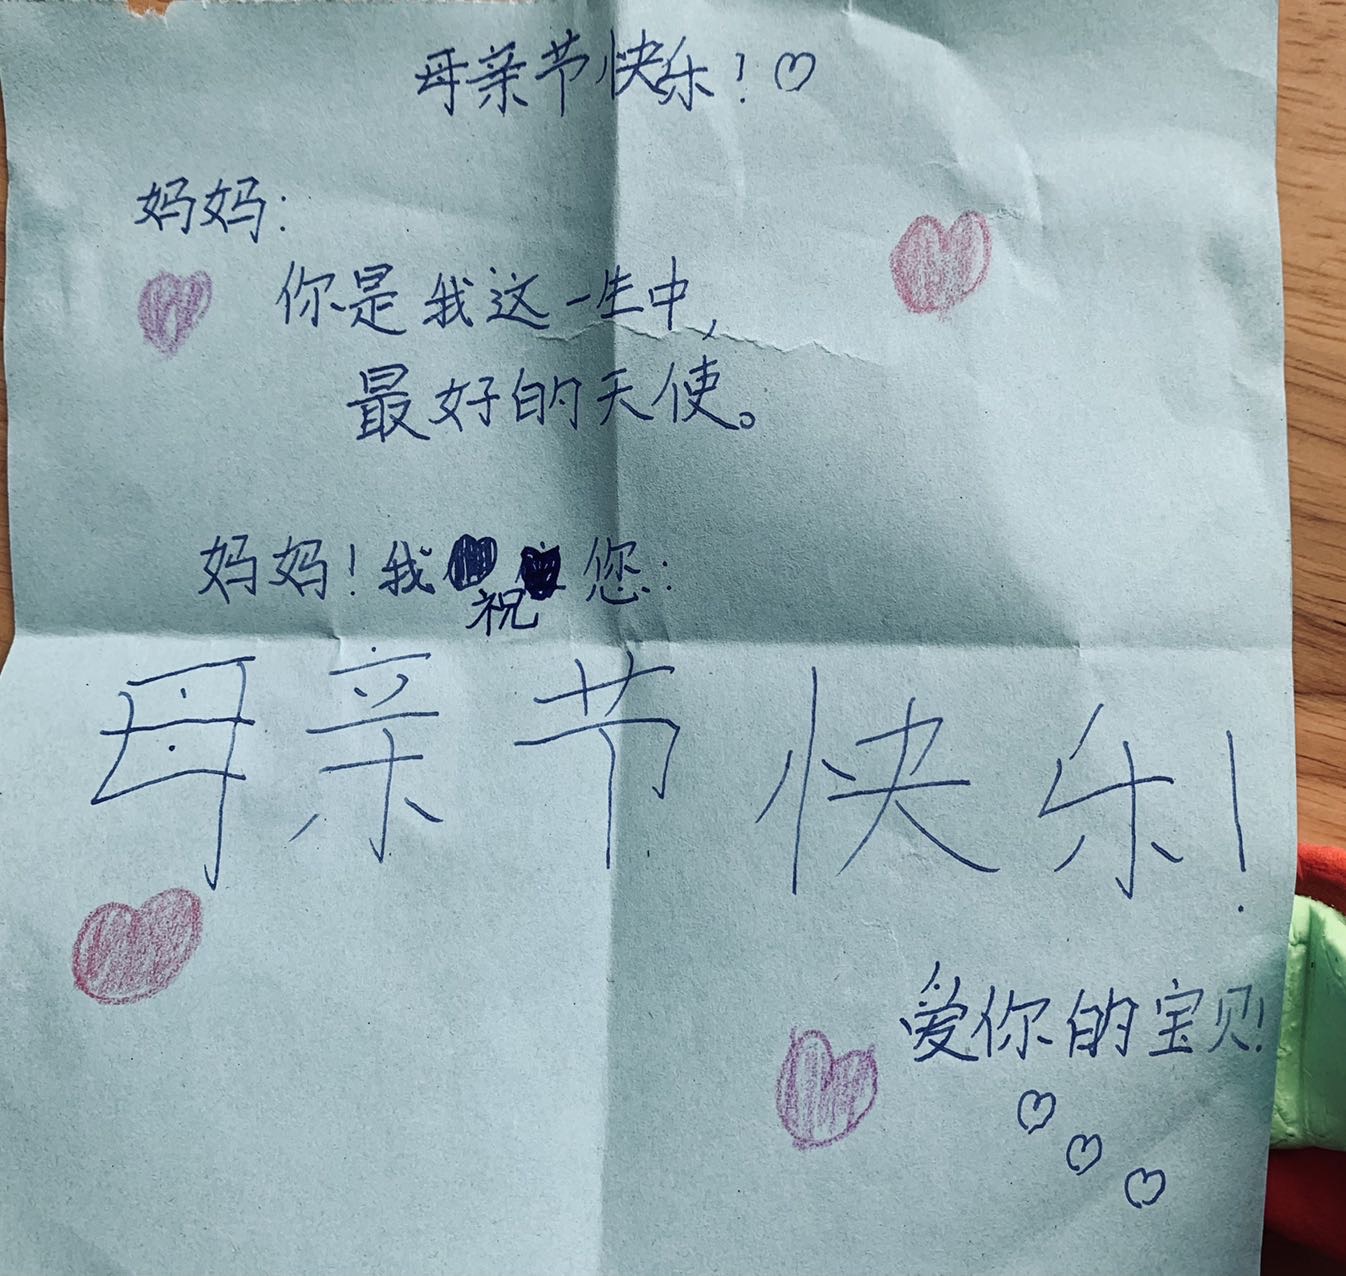 母亲节快乐！♡
妈妈：
你是我这一生中，
最好的天使。
妈妈！我祝您：
母亲节快乐！
爱你的宝贝！